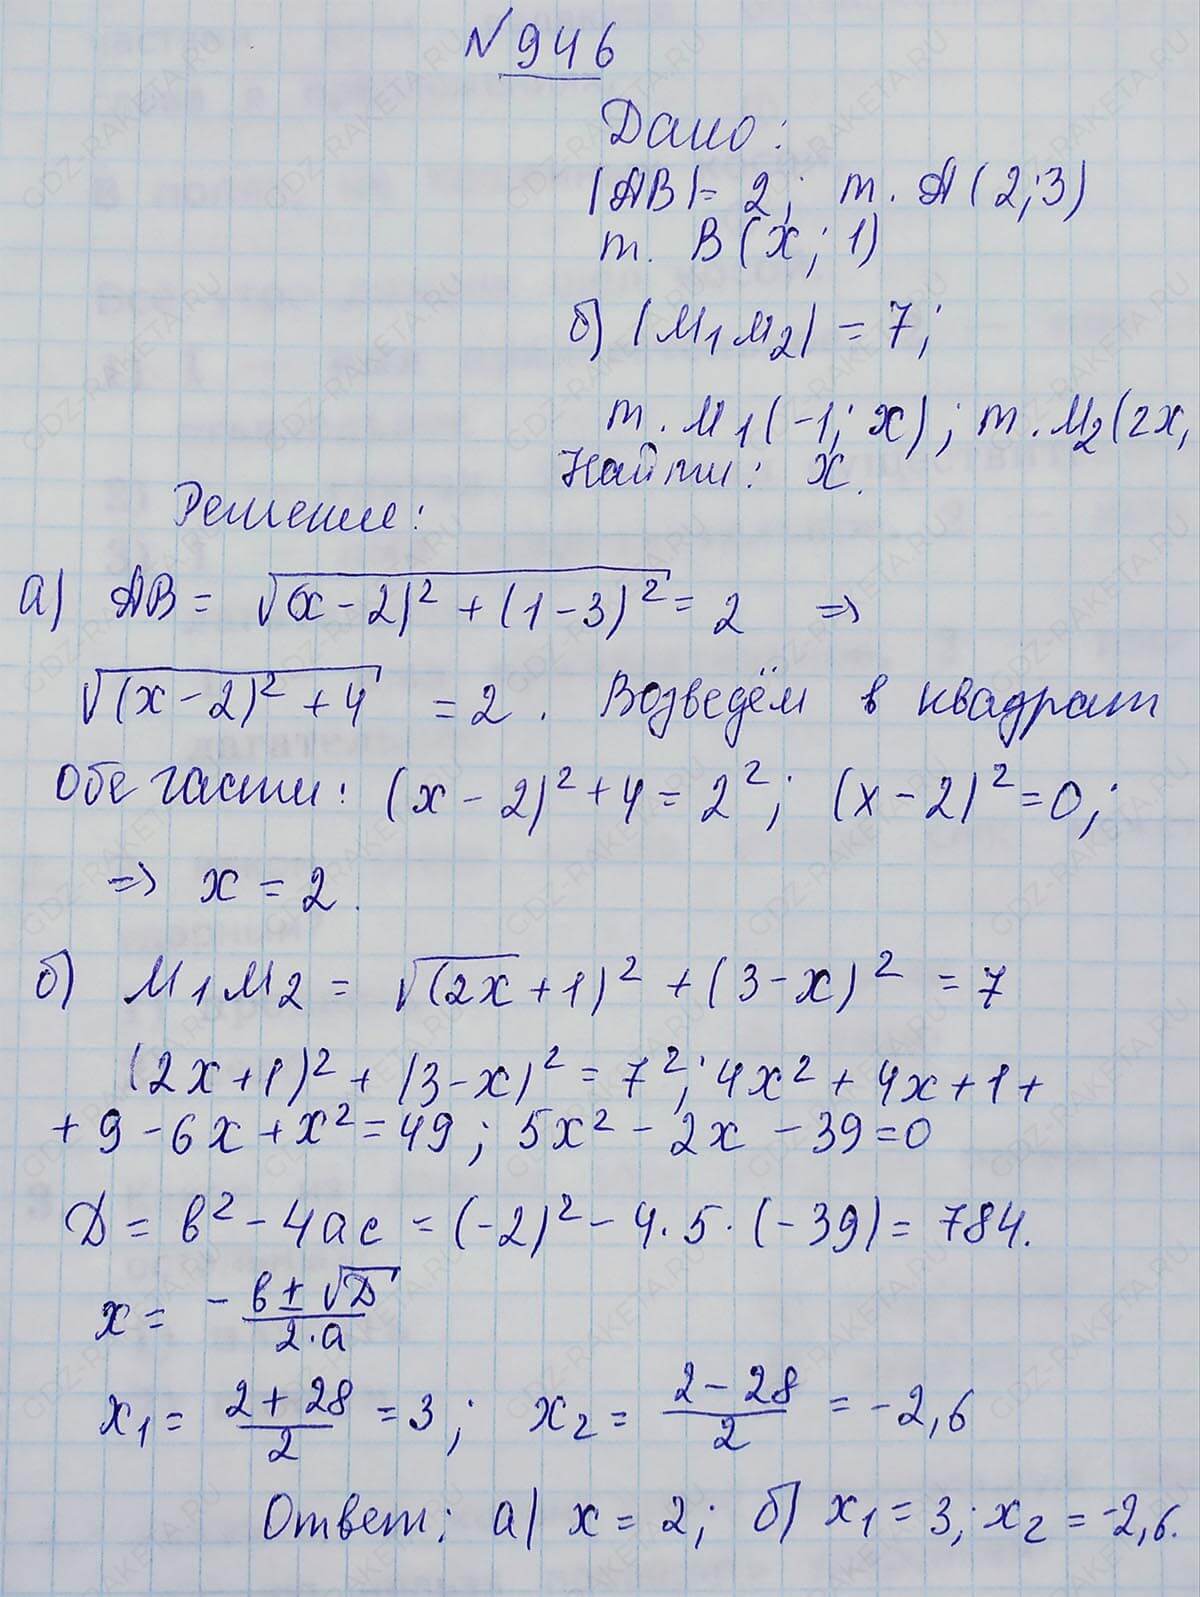 №946
Дано:
|AB|= 2; т. A(2;3)
т. B(x; 1)
б) |M1M2| = 7;
т. M1(-1; x); т. M2(2x,
Найти: x.
Решение:
а) AB = √(x-2)² + (1-3)² = 2 =>
√(x-2)² + 4 = 2. Возведём в квадрат
обе части: (x-2)² + 4 = 2²; (x-2)² = 0;
=> x = 2.
б) M1M2 = √(2x+1)² + (3-x)² = 7
(2x+1)² + (3-x)² = 7²; 4x² + 4x + 1 +
+ 9 - 6x + x² = 49; 5x² - 2x - 39 = 0
D = b² - 4ac = (-2)² - 4·5·(-39) = 784.
x = - b ± √D / 2·a
x1 = 2+28 / 2 = 3; x2 = 2-28 / 2 = -2,6
Ответ: а) x = 2; б) x1 = 3; x2 = -2,6.
GDZ-RAKETA.RU